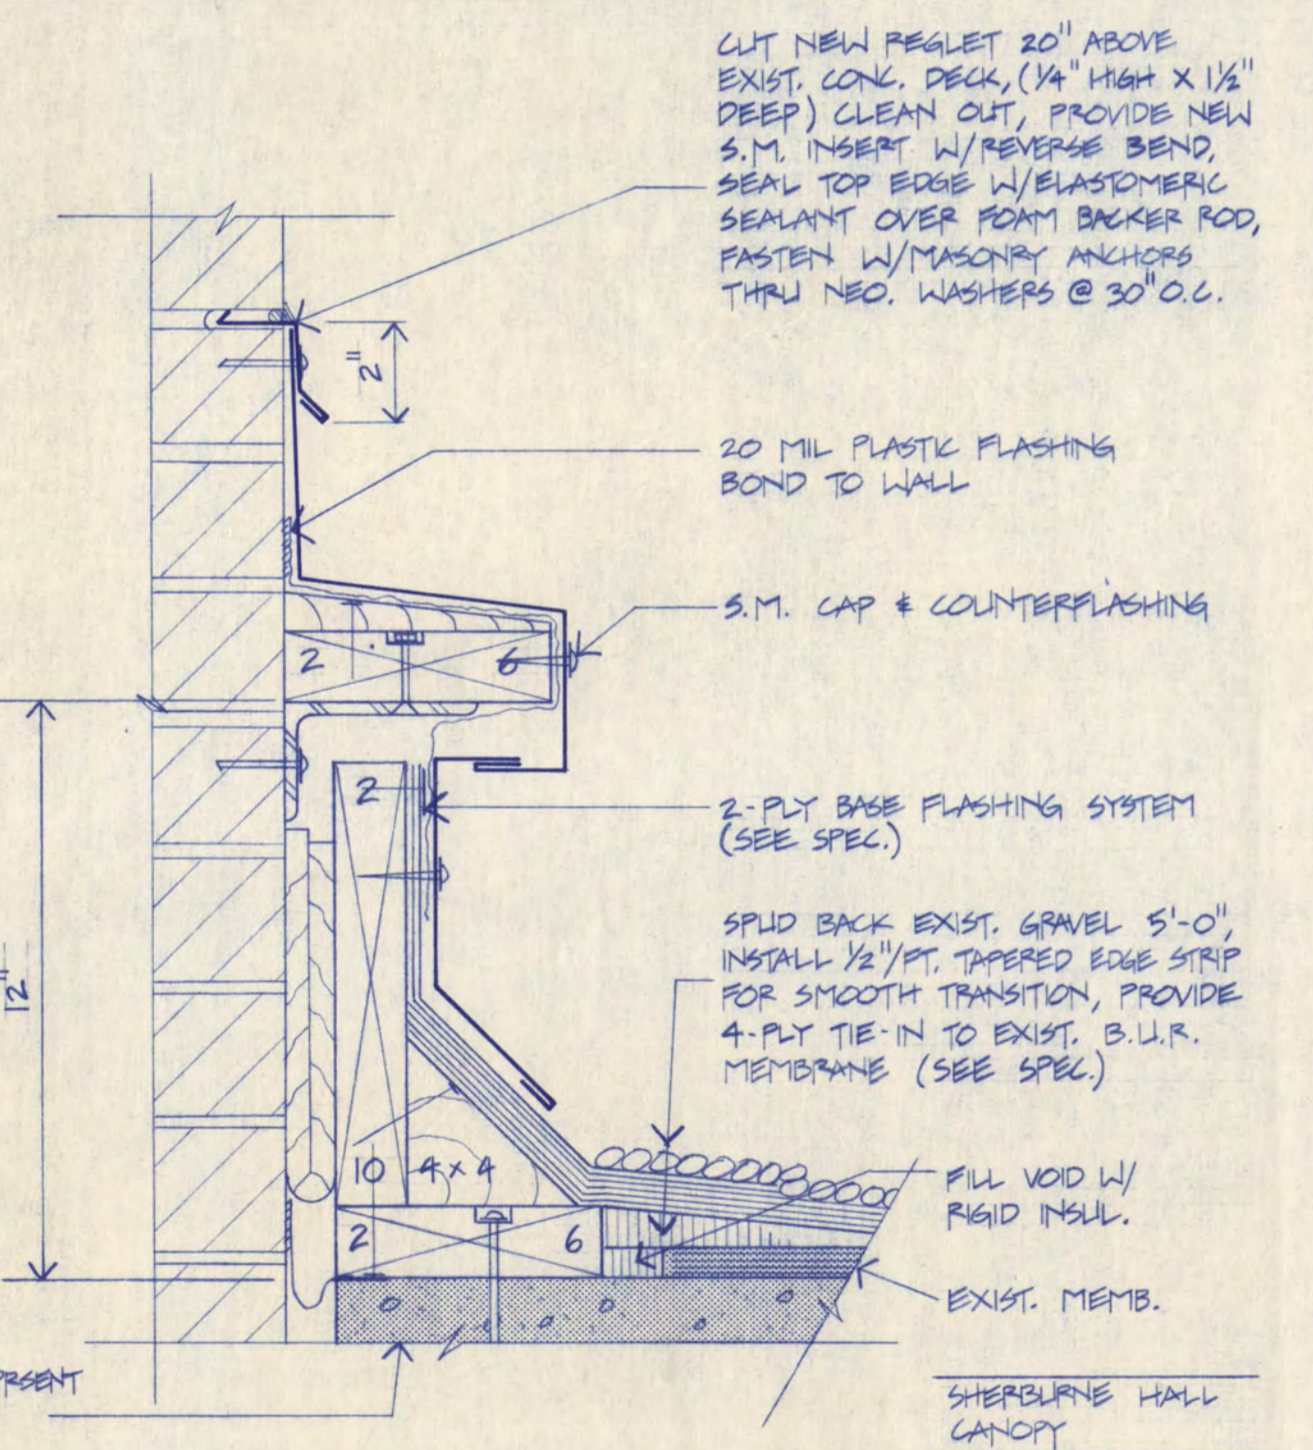 CUT NEW REGLET 20" ABOVE
EXIST. CONC. DECK, (1/4" HIGH X 1 1/2"
DEEP) CLEAN OUT, PROVIDE NEW
S.M. INSERT W/REVERSE BEND,
SEAL TOP EDGE W/ELASTOMERIC
SEALANT OVER FOAM BACKER ROD,
FASTEN W/MASONRY ANCHORS
THRU NEO. WASHERS @ 30" O.C.
2"
20 MIL PLASTIC FLASHING
BOND TO WALL
S.M. CAP & COUNTERFLASHING
2 6
2
2-PLY BASE FLASHING SYSTEM
(SEE SPEC.)
12"
SPUD BACK EXIST. GRAVEL 5'-0",
INSTALL 1/2"/FT. TAPERED EDGE STRIP
FOR SMOOTH TRANSITION, PROVIDE
4-PLY TIE-IN TO EXIST. B.U.R.
MEMBRANE (SEE SPEC.)
10 4 x 4
FILL VOID W/
RIGID INSUL.
2 6
EXIST. MEMB.
SHERBURNE HALL
CANOPY